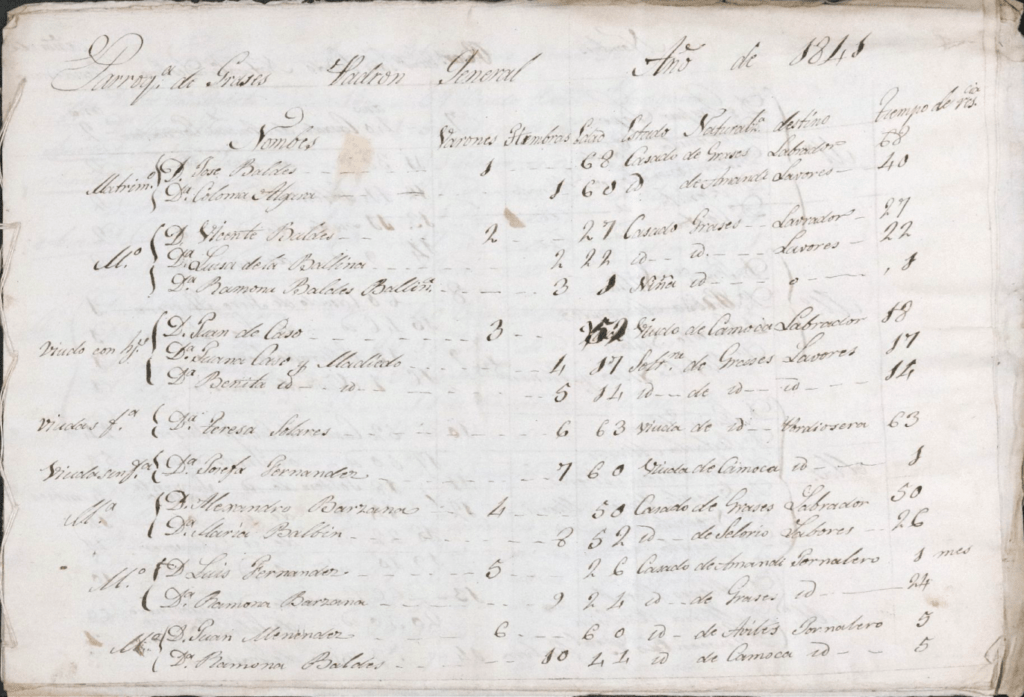 Parroq.ª de Grases Padron General Año de 1841
Nombes Varones Hembras Edad Estado Natural.ª destino tiempo de res.cia
Matrim.º D. Jose Baldes 1 68 Casado de Grases Labrador 68
D.ª Coloma 1 60 id de Amandi Lavores 40
D. Vicente Baldes 2 27 Casado Grases Labrador 27
M.º D.ª Luisa de la Ballina 2 22 id id Lavores 22
D.ª Ramona Baldes Ballin.ª 3 1 Niña id o 1
D. Juan de Caso 3 52 Viudo de Camoca Labrador 18
Viudo con hij.s D.ª Juana Caso y Madiedo 4 17 Solt.ra de Grases Lavores 17
D.ª Benita id id 5 14 id de id id 14
Viudas f.ª D.ª Teresa Solares 6 63 Viuda de id Pordiosera 63
Viuda sin f.ª D.ª Josefa Fernandez 7 60 Viuda de Camoca id 1
M.º D. Alexandro Barzana 4 50 Casado de Grases Labrador 50
D.ª Maria Balbin 8 52 id de Selorio Labores 26
M.º D. Luis Fernandez 5 26 Casado de Amandi Jornalero 1 mes
D.ª Ramona Barzana 9 24 id de Grases id 24
M.º D. Juan Menendez 6 60 id de Aviles Jornalero 5
D.ª Ramona Baldes 10 44 id de Camoca id 5